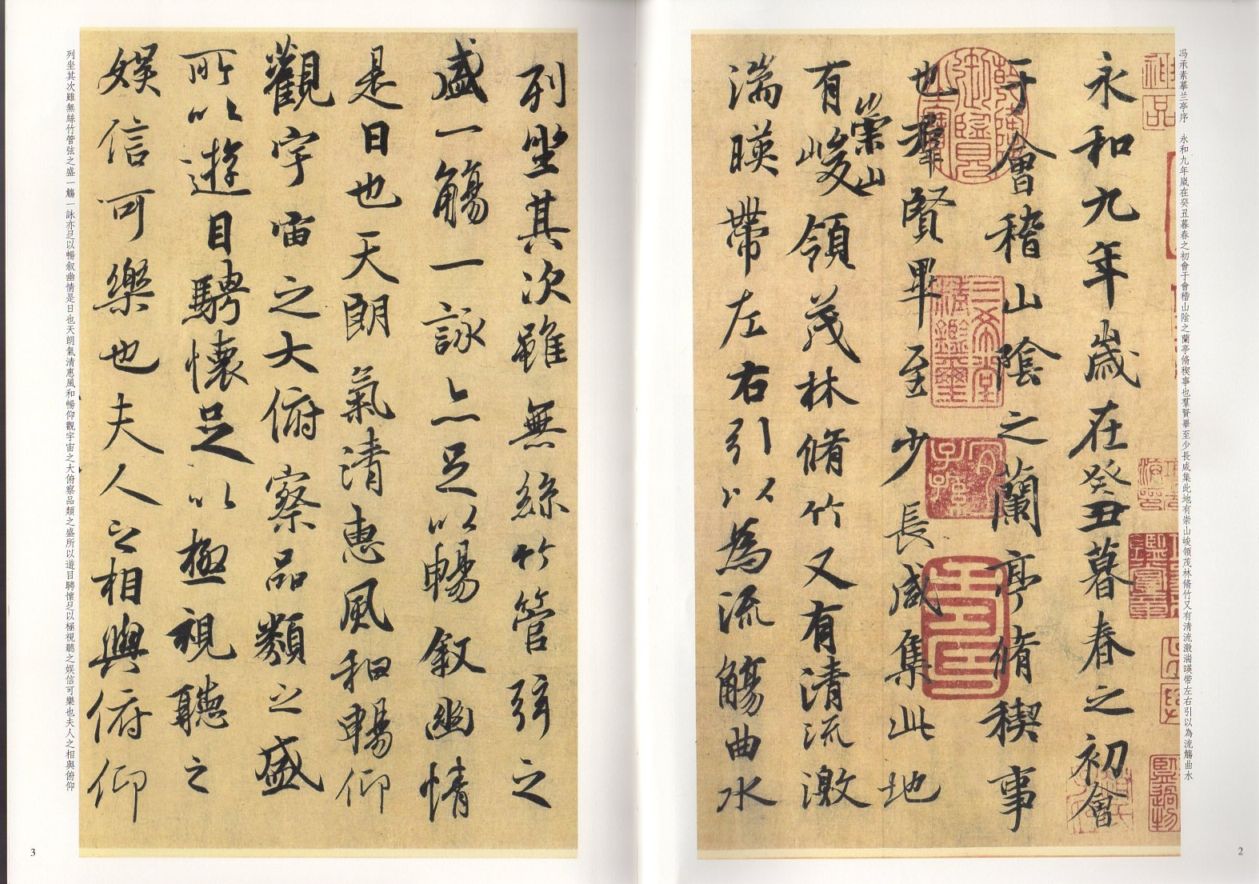 冯承素摹兰亭序 永和九年嵗在癸丑暮春之初會于會稽山陰之蘭亭脩稧事也羣賢畢至少長咸集此地有崇山峻領茂林脩竹又有清流激湍暎带左右引以為流觴曲水
神品
永和九年嵗在癸丑暮春之初會
于會稽山陰之蘭亭脩稧事
也羣賢畢至少長咸集此地
三希堂精鑑璽
宜子孫
崇山
有峻領茂林脩竹又有清流激
湍暎帶左右引以為流觴曲水
2
列坐其次雖無絲竹管弦之
盛一觴一詠亦足以暢敘幽情
是日也天朗氣清惠風和暢仰
觀宇宙之大俯察品類之盛
所以遊目騁懷足以極視聽之
娛信可樂也夫人之相與俯仰
列坐其次雖無絲竹管弦之盛一觴一詠亦足以暢叙幽情是日也天朗氣清惠風和暢仰觀宇宙之大俯察品類之盛所以遊目騁懷足以極視聽之娱信可樂也夫人之相與俯仰
3